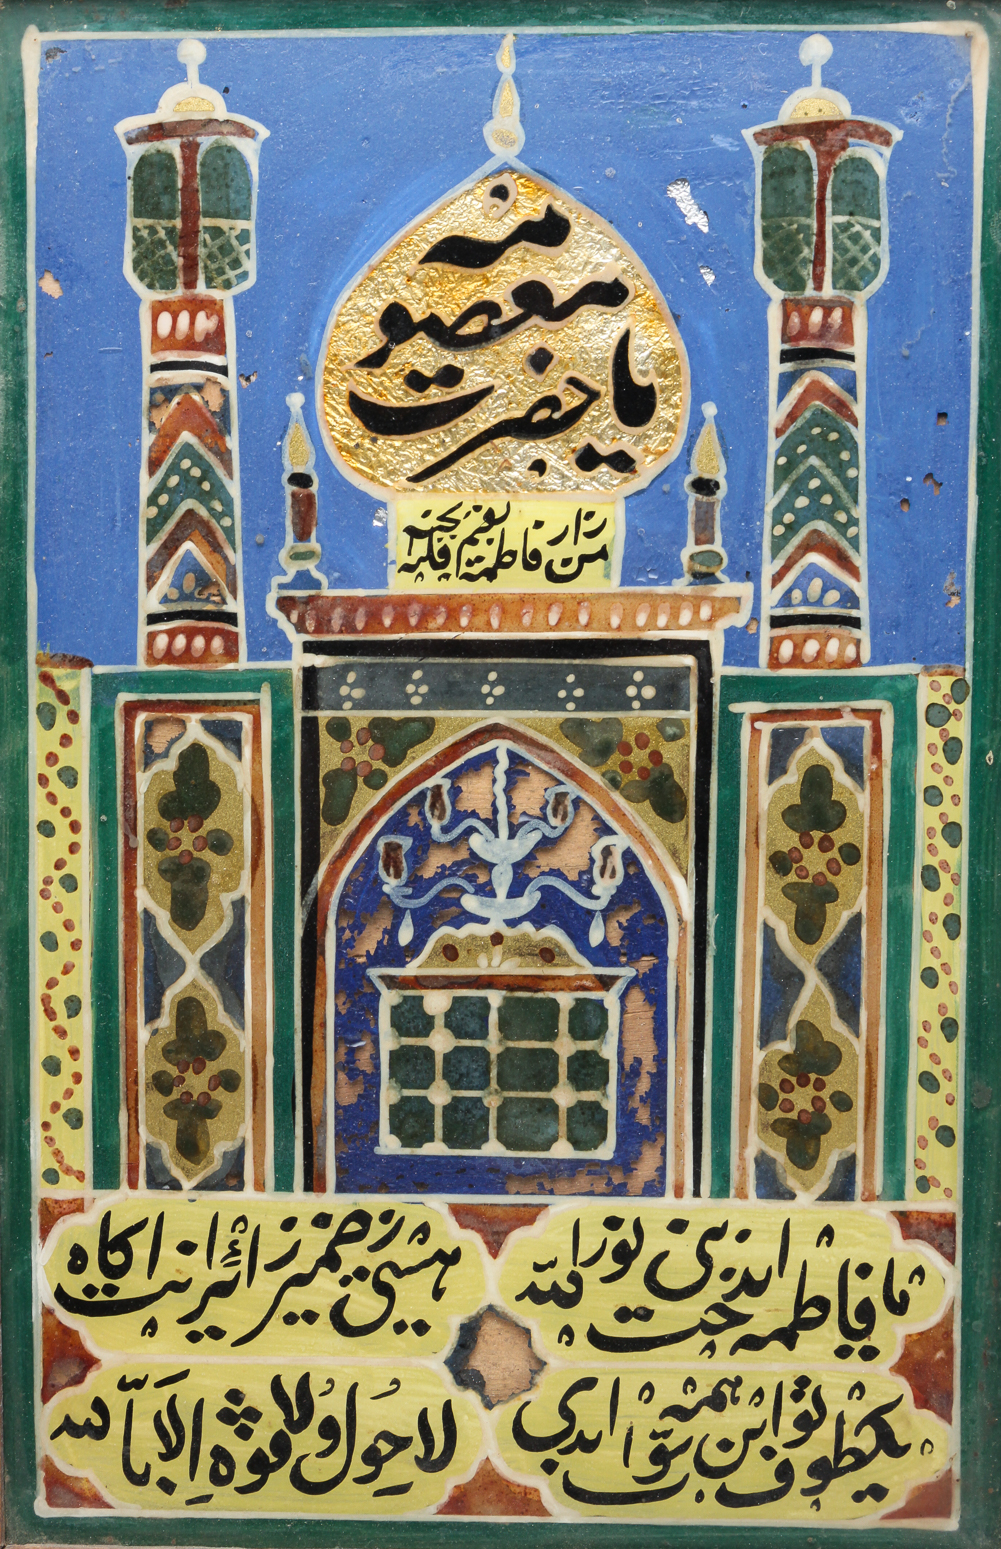 یا حضرت
معصو
مه
من زار فاطمة بقم فله الجنة
یا فاطمه ای دخت نبی نور الله
هستی ز ضمیر زائرانت آگاه
یکطوف تو این همه ثواب ابدی
لا حَول وَلا قوة اِلا بالله